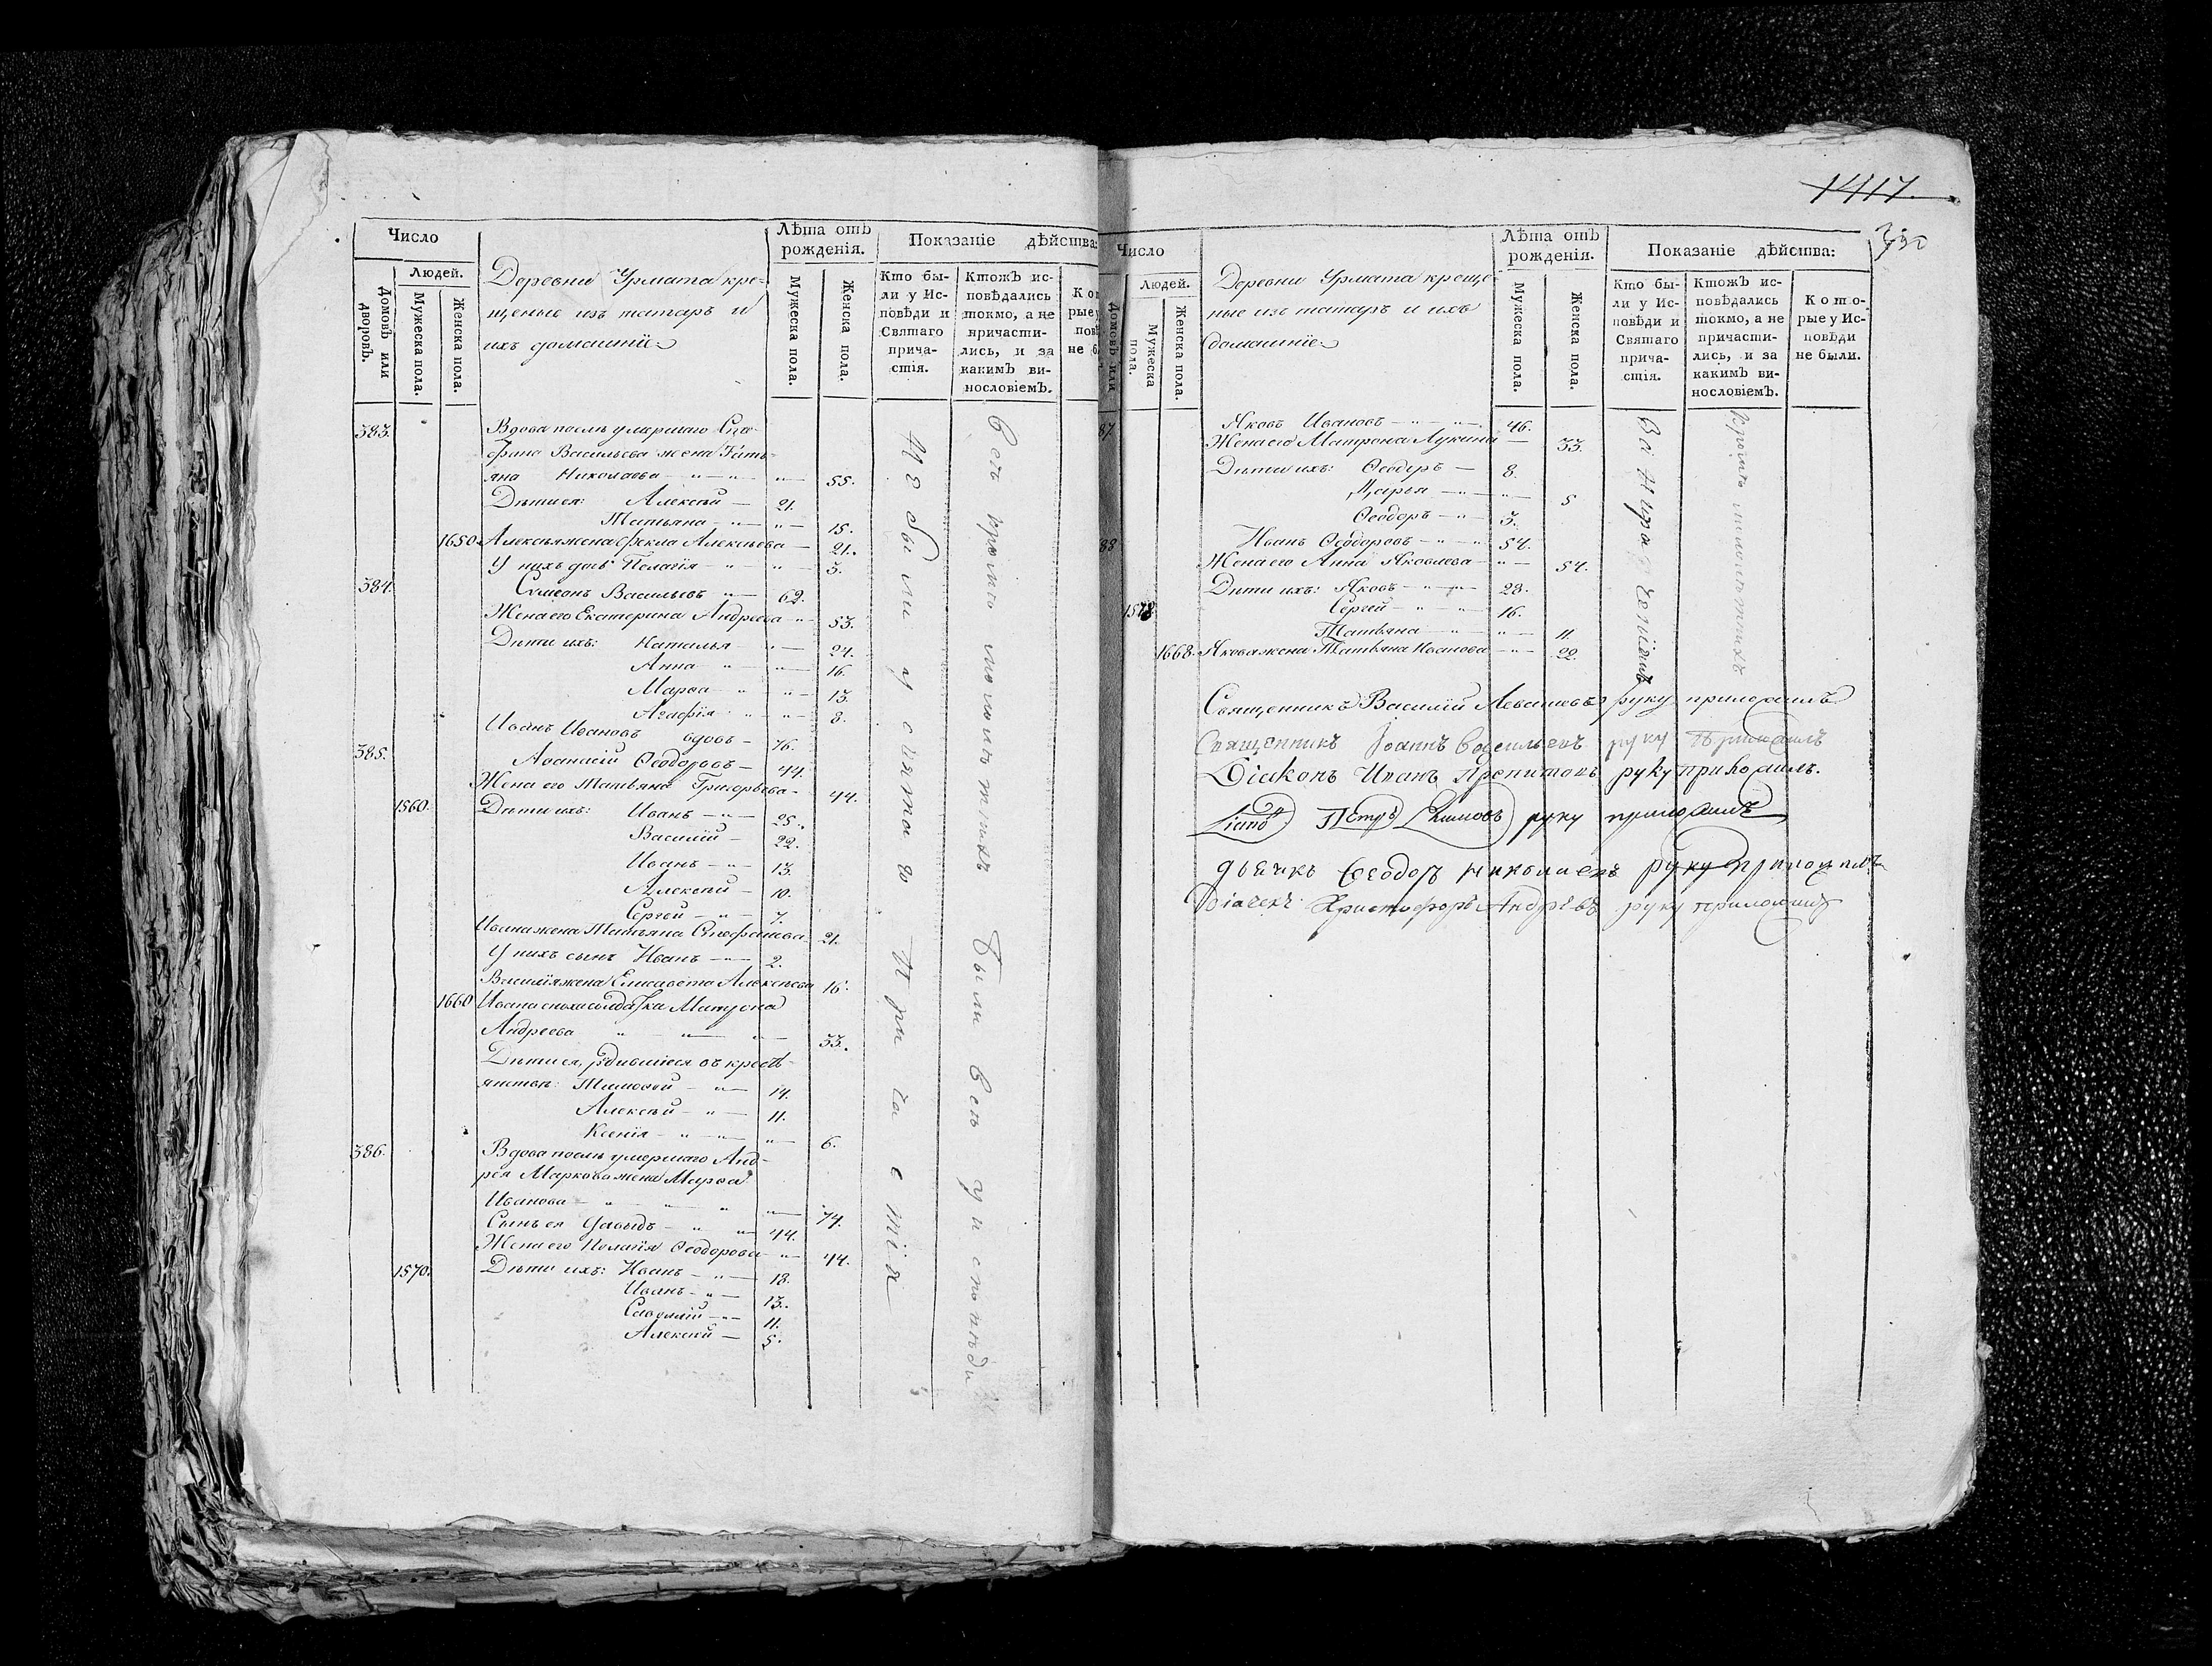 Число
Лѣта отъ рожденія.
Показаніе дѣйства:
Людей.
Домовъ или дворовъ.
Мужеска пола.
Женска пола.
Деревни Урмата кре-
щеные изъ татаръ и
ихъ домашніе
Мужеска пола.
Женска пола.
Кто бы-
ли у Ис-
повѣди и
Святаго
прича-
стія.
Ктожъ ис-
повѣдались
токмо, а не
причасти-
лись, и за
какимъ ви-
нословіемъ.
383. Вдова послѣ умершаго Сте-
фана Васильева жена Тать-
яна Николаева 55.
Дѣти ея: Алексѣй 21.
Татьяна 15.
1650. Алексѣя жена Фекла Алексѣева 21.
У нихъ дочь Пелагія 3.
384. Симеонъ Васильевъ 62.
Жена его Екатерина Андреева 53.
Дѣти ихъ: Наталья 24.
Анна 16.
Марѳа 13.
Агафія 8.
Иванъ Ивановъ вдовъ 76.
385. Аѳанасій Ѳеодоровъ 44.
Жена его Татьяна Григорьева 44.
1560. Дѣти ихъ: Иванъ 25.
Василій 22.
Иванъ 13.
Алексѣй 10.
Сергей 7.
Ивана жена Татьяна Стефанова 21.
У нихъ сынъ Иванъ 2.
Василія жена Елисавета Алексѣева 16.
1660 Ивана сноха солдатка Матрона
Андреева 33.
Дѣти ея, родившіеся въ кресть-
янствѣ: Тимоѳей 14.
Алексѣй 11.
Ксенія 6.
386. Вдова послѣ умершаго Анд-
рея Маркова жена Марѳа
Иванова 74.
Сынъ ея Давыдъ 44.
Жена его Пелагія Ѳеодорова 44.
1570. Дѣти ихъ: Иванъ 18.
Иванъ 13.
Савелій 11.
Алексѣй 5.
Не были у святаго Причастія
Всѣ кромѣ были всѣ у исповѣди
1417.
Число
Лѣта отъ рожденія.
Показаніе дѣйства:
Людей.
Домовъ или
Мужеска пола.
Женска пола.
Деревни Урмата креще-
ные изъ татаръ и ихъ
домашніе
Мужеска пола.
Женска пола.
Кто бы-
ли у Ис-
повѣди и
Святаго
прича-
стія.
Ктожъ ис-
повѣдались
токмо, а не
причасти-
лись, и за
какимъ ви-
нословіемъ.
Кото-
рые у Ис-
повѣди
не были.
87 Яковъ Ивановъ 46.
Жена его Матрона Лукина 33.
Дѣти ихъ: Ѳеодоръ 8.
Дарья 5
Ѳеодоръ 3.
88 Иванъ Ѳеодоровъ 54.
Жена его Анна Яковлева 54.
Дѣти ихъ: Яковъ 28.
1578 Сергей 16.
Татьяна 11.
1668. Якова жена Татьяна Иванова 22.
Священникъ Василій Левашовъ руку приложилъ
Священникъ Іоаннъ Васильевъ руку приложилъ
Діаконъ Иванъ руку приложилъ.
Петръ руку приложилъ
дьячекъ Ѳеодоръ Николаевъ руку приложилъ
Діачекъ Христофоръ Андреевъ руку приложилъ